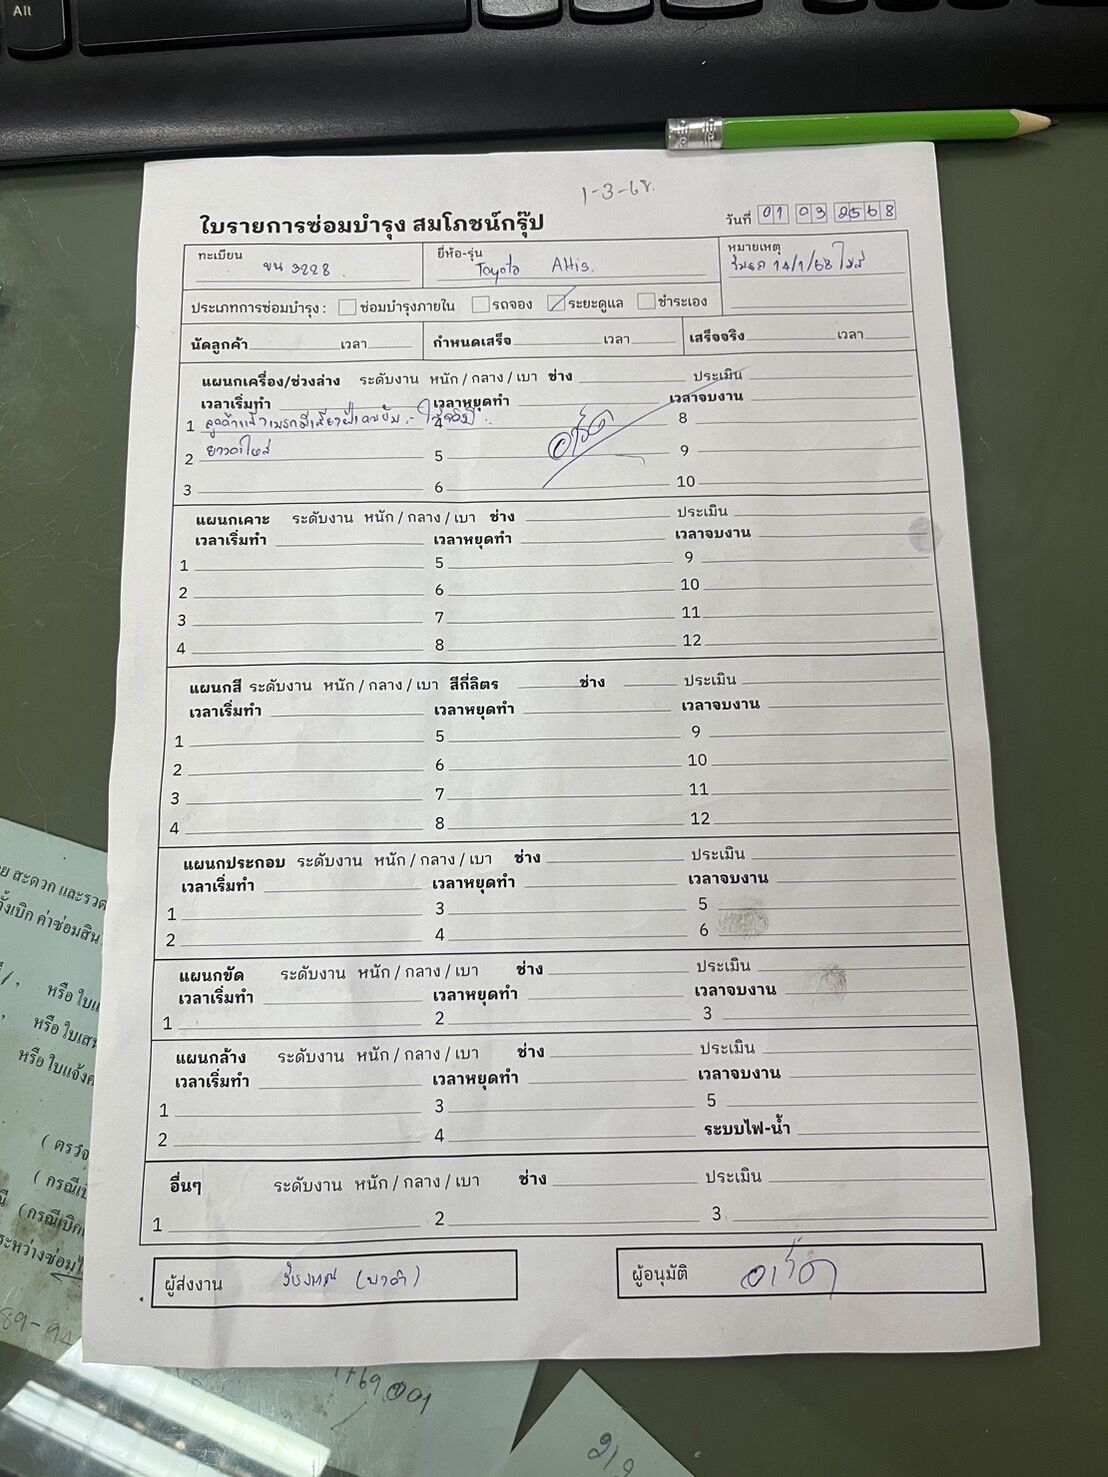 Alt
1-3-68.
ใบรายการซ่อมบำรุง สมโภชน์กรุ๊ป
วันที่ 01 03 2568
ทะเบียน ขน 3228
ยี่ห้อ-รุ่น Toyota Altis.
หมายเหตุ 14/1/68
ประเภทการซ่อมบำรุง : ซ่อมบำรุงภายใน รถจอง ระยะดูแล ชำระเอง
นัดลูกค้า เวลา กำหนดเสร็จ เวลา เสร็จจริง เวลา
แผนกเครื่อง/ช่วงล่าง ระดับงาน หนัก / กลาง / เบา ช่าง ประเมิน
เวลาเริ่มทำ เวลาหยุดทำ เวลาจบงาน
1 ลูกค้าแจ้ง 4 8
2 5 9
3 6 10
แผนกเคาะ ระดับงาน หนัก / กลาง / เบา ช่าง ประเมิน
เวลาเริ่มทำ เวลาหยุดทำ เวลาจบงาน
1 5 9
2 6 10
3 7 11
4 8 12
แผนกสี ระดับงาน หนัก / กลาง / เบา สีกี่ลิตร ช่าง ประเมิน
เวลาเริ่มทำ เวลาหยุดทำ เวลาจบงาน
1 5 9
2 6 10
3 7 11
4 8 12
แผนกประกอบ ระดับงาน หนัก / กลาง / เบา ช่าง ประเมิน
เวลาเริ่มทำ เวลาหยุดทำ เวลาจบงาน
1 3 5
2 4 6
แผนกขัด ระดับงาน หนัก / กลาง / เบา ช่าง ประเมิน
เวลาเริ่มทำ เวลาหยุดทำ เวลาจบงาน
1 2 3
แผนกล้าง ระดับงาน หนัก / กลาง / เบา ช่าง ประเมิน
เวลาเริ่มทำ เวลาหยุดทำ เวลาจบงาน
1 3 5
2 4 ระบบไฟ-น้ำ
อื่นๆ ระดับงาน หนัก / กลาง / เบา ช่าง ประเมิน
1 2 3
ผู้ส่งงาน
ผู้อนุมัติ
สะดวก และรวด
ค่าซ่อมสิน
หรือ ใบแ
หรือ ใบเสน
หรือ ใบแจ้งค
( ตรวจ
( กรณีเบิ
(กรณีเบิก
ระหว่างซ่อม